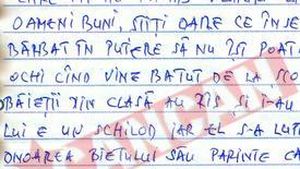 OAMENI BUNI, ȘTIȚI OARE CE ÎNSE
BĂRBAT ÎN PUTERE SĂ NU ÎȘI POAT
OCHI CÎND VINE BĂTUT DE LA ȘCO
BĂIEȚII DIN CLASĂ AU RÎS ȘI I-AU
LUI E UN SCHILOD IAR EL S-A LUT
ONOAREA BIETULUI SĂU PĂRINTE CA